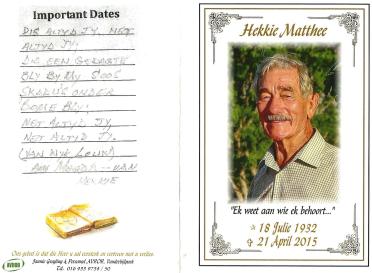 Important Dates
DIS ALTYD JY, NET
ALTYD JY,
DIE EEN GEDAGTE
BLY BY MY SOOS
SKADUS ONDER
BOME BLY,
NET ALTYD JY,
NET ALTYD JY.
(VAN WYK LOUW)
VAN
Ons gebed is dat die Here u sal vertroos en
AVBOB, Vanderbijlpark
Tel. 016 933 9734 / 50
AVBOB
Hekkie Matthee
"Ek weet aan wie ek behoort..."
18 Julie 1932
21 April 2015